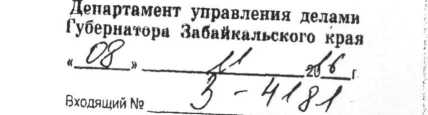 Департамент управления делами
Губернатора Забайкальского края
«08» 11 2016 г.
Входящий № 3-4181